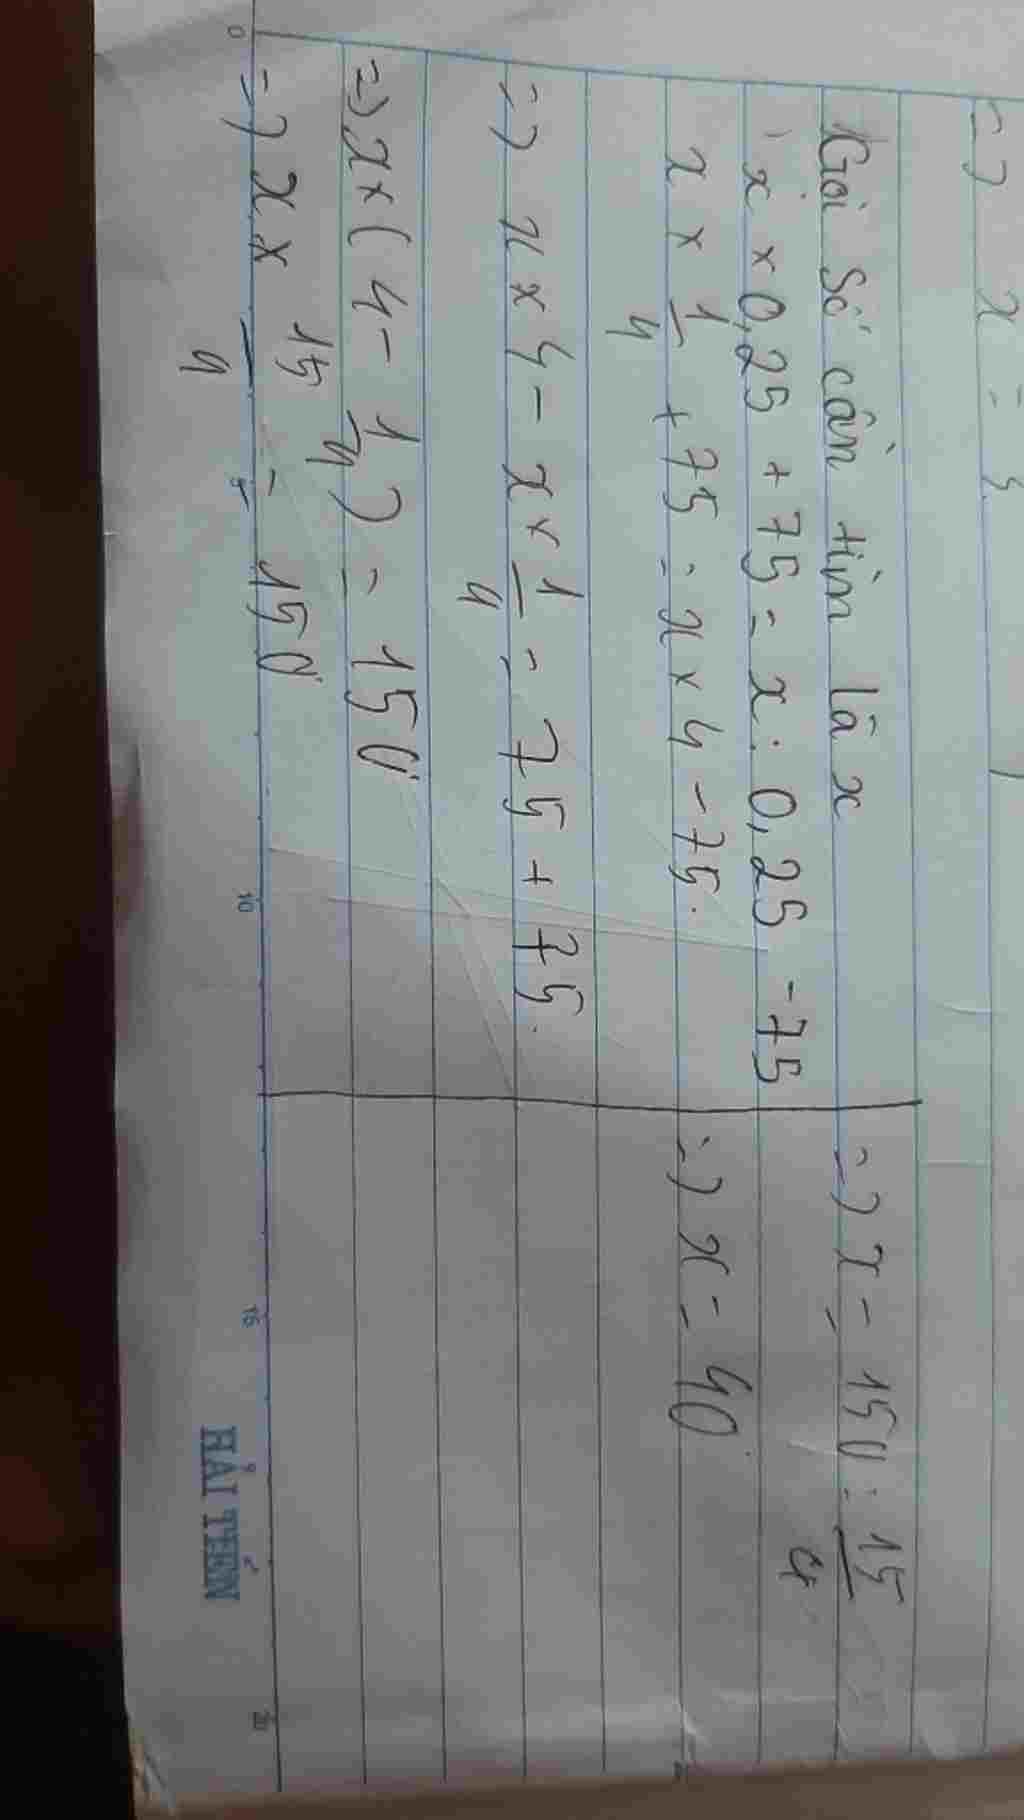 => x = 
Gọi số cần tìm là x
x × 0,25 + 75 = x : 0,25 - 75
x × 1/4 + 75 = x × 4 - 75.
=> x × 4 - x × 1/4 = 75 + 75.
=> x × ( 4 - 1/4 ) = 150
=> x × 15/4 = 150
=> x = 150 : 15/4
=> x = 40
0 5 10 15 20
HẢI TIẾN